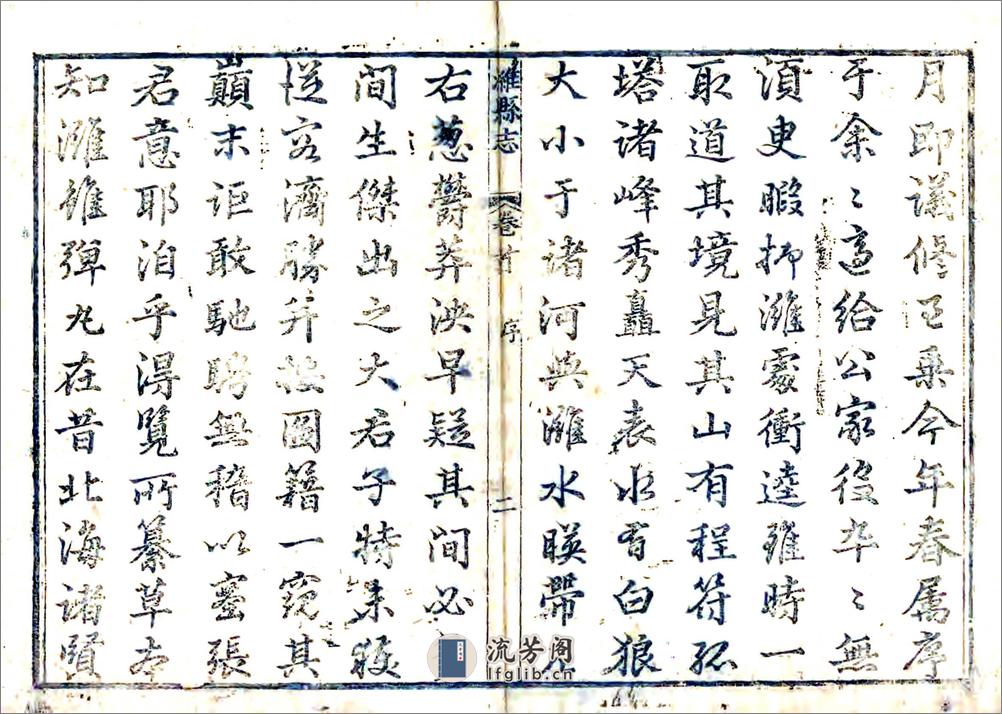 月即議修邑乗今年春属序
于余〻適給公家役卒〻無
湏吏暇抑濰處衝逵雖時一
取道其境見其山有程符孤
塔諸峰秀矗天表水有白狼
大小于諸河與濰水暎帶左
濰縣志
卷首
序
二
右葱欝莽泱早疑其間必
間生傑出之大君子特未獲
從容濟勝并按圖籍一窺其
巔末詎敢馳騁無稽以塞張
君意耶洎乎淂覽所纂草本
知濰雖弾丸在昔北海諸賢
流芳阁
lfglib.cn